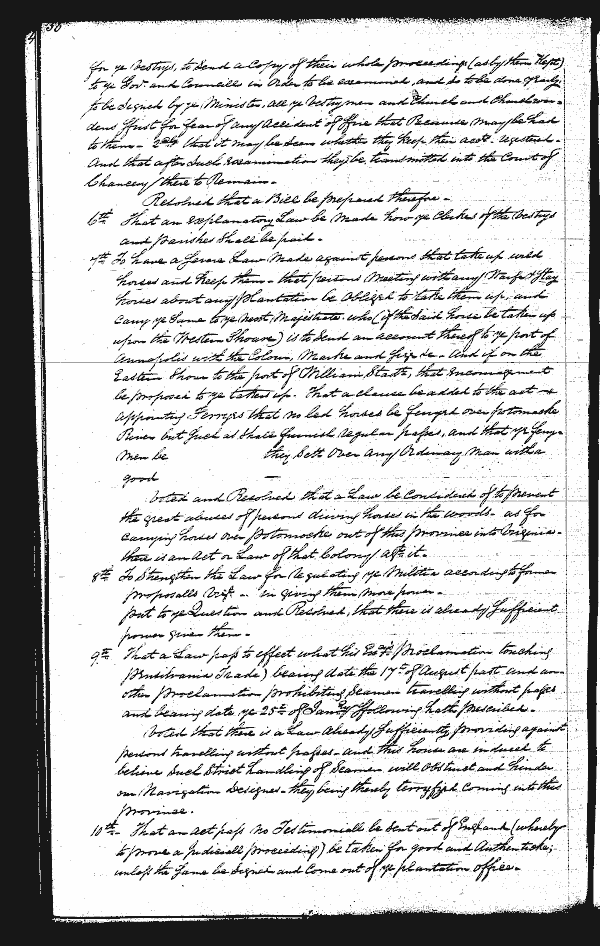 30
for ye Vestrys, to Send a Copy of their whole proceedings (as by them Kept)
to ye Govr and Councill in Order to be examined, and so to be done yearly,
to be Signed by ye Minister, all ye Vestry men and Church and Churchwar-
dens ffirst for fear of any Accident of ffire that Recourse may be had
to them - 2dly that it may be Seen whether they keep their acots. registered -
And that after Such Examination they be transmitted into the Court of
Chancery there to Remain -
Resolved that a Bill be prepared therefore -
6th That an explanatory Law be Made how ye Clerkes of the Vestrys
and parishes Shall be paid -
7th To have a Severe Law Made against persons that take up wild
horses and Keep them - that persons Meeting with any Waife & Stray
horses about any plantation be Obliged to take them up, and
carry ye Same to ye next Majestrate who (if the Said horse be taken up
upon the Western Shoare) is to Send an account thereof to ye port of
Annapolis with the Colour, Marke and - And if on the
Eastern Shoar to the port of William Stadt, that Encouragement
be proposed to ye takers up. That a clause be added to the act
appointing fferryes that no led horses be fferryed over potomacke
River but Such as Shall ffurnish regular passes, and that ye fferry-
Men be they Sett Over any Ordinary Man with a
good -
Voted and Resolved that a Law be Considered of to prevent
the great abuses of persons driving horses in the woods - as for
carrying horses over Potomocke out of this province into Virginia -
there is an Act or Law of that Colony agt it -
8th To Strengthen the Law for regulating ye Militia according to former
proposalls Vizt - in giving them more power -
put to ye Question and Resolved, that there is already Sufficient
power given them -
9th That a Law pass to effect what his Excys Proclamation touching
pensilvania Trade) bearing date the 17th of August past and an-
other Proclamation prohibiting Seamen travelling without passes
and bearing date ye 25th of Janry ffollowing hath prescribed -
Voted that there is a Law Already Sufficiently providing against
persons travelling without passes - and this house are induced to
believe Such Strict handling of Seamen will Obstruct and hinder
our Navigation Designes - they being thereby terryfyed Coming into this
province.
10th - That an act pass no Testimoniall be Sent out of England (whereby
to prove a Judiciall proceeding) be taken for good and Authenticke;
unless the Same be Signed and Come out of ye plantation office -